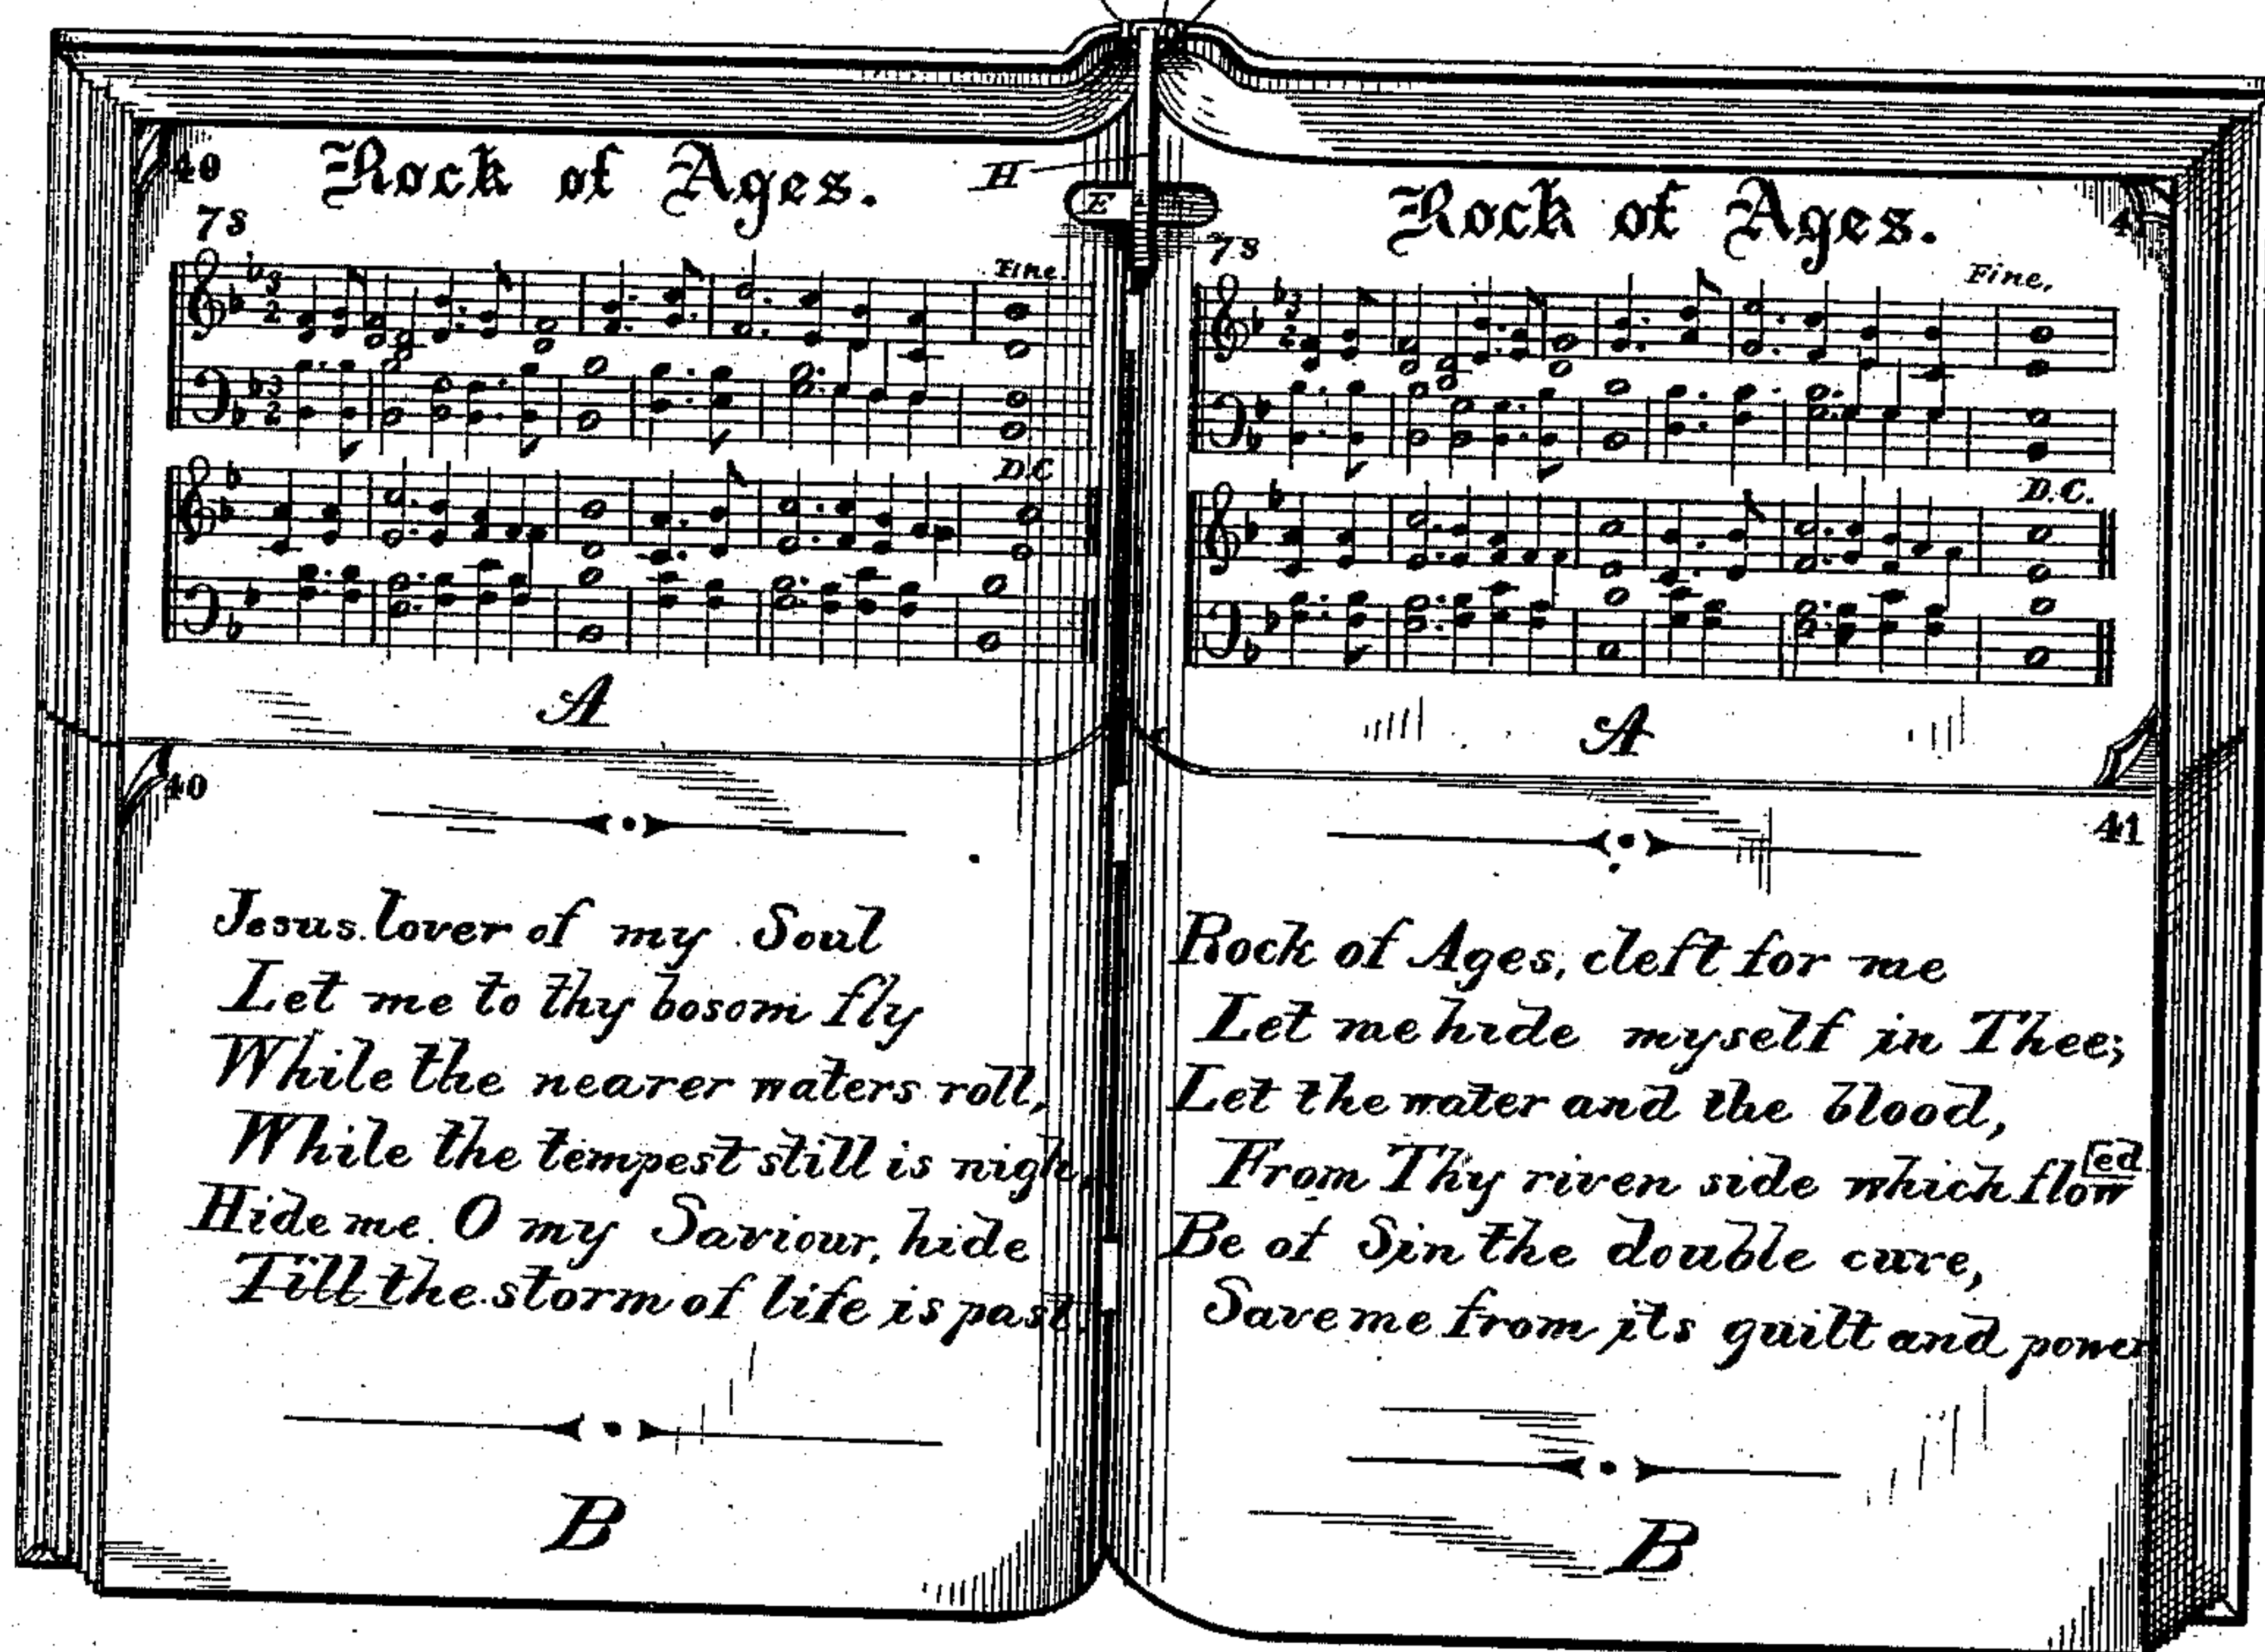 40
Rock of Ages.
H
E
7s
Fine.
D.C
A
40
Jesus lover of my Soul
Let me to thy bosom fly
While the nearer waters roll,
While the tempest still is nigh,
Hide me O my Saviour, hide
Till the storm of life is past.
B
Rock of Ages.
41
7s
Fine.
D.C.
A
41
Rock of Ages, cleft for me
Let me hide myself in Thee;
Let the water and the blood,
From Thy riven side which flow
[ed
Be of Sin the double cure,
Save me from its guilt and power
B